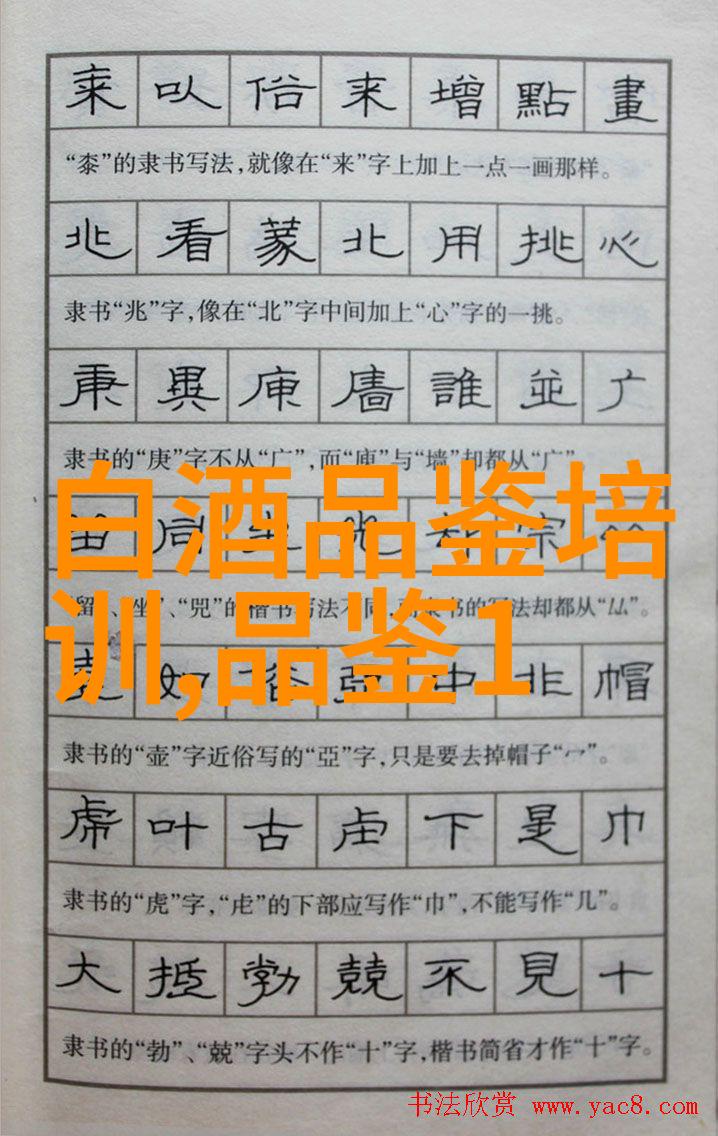 来以俗来增點畫
“桼”的隶书写法，就像在“来”字上加上一点一画那样。
兆看蒙北用挑心
隶书“兆”字，像在“北”字中间加上“心”字的一挑。
庚異庾廧誰並广
隶书的“庚”字不从“广”，而“庾”与“墙”却都从“广”
白酒品鉴培
同
“留”、“坐”、“兕”的楷书写法不同，而隶书的写法却都从“厸”。
训,品鉴1
如俗亞中非帽
隶书的“壶”字近俗写的“亞”字，只是要去掉帽子“冖”。
虎叶古虍下是巾
隶书的“虎”字，“虍”的下部应写作“巾”，不能写作“几”。
大抵勃兢不見十
隶书的“勃”、“兢”字头不作“十”字，楷书简省才作“十”字。
书法欣赏 www.yac8.com